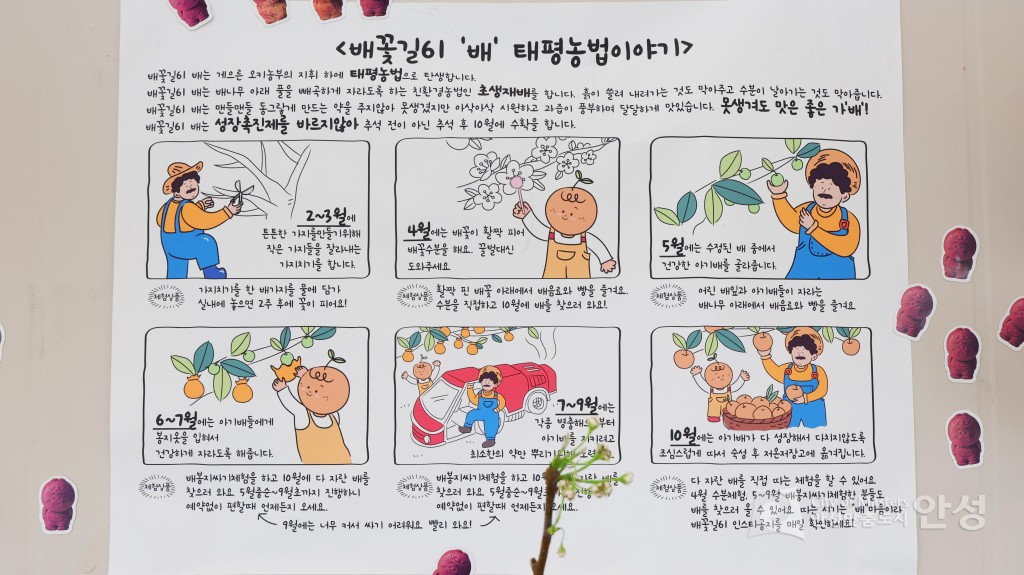 <배꽃길61 '배' 태평농법이야기>
배꽃길61 배는 게으른 오키농부의 지휘 하에 태평농법으로 탄생합니다.
배꽃길61 배는 배나무 아래 풀을 빼곡하게 자라도록 하는 친환경농법인 초생재배를 합니다. 흙이 쓸려 내려가는 것도 막아주고 수분이 날아가는 것도 막아줍니다.
배꽃길61 배는 맨들맨들 동그랗게 만드는 약을 주지않아 못생겼지만 아삭아삭 시원하고 과즙이 풍부하며 달달하게 맛있습니다. 못생겨도 맛은 좋은 가'배'!
배꽃길61 배는 성장촉진제를 바르지않아 추석 전이 아닌 추석 후 10월에 수확을 합니다.
2~3월에
튼튼한 가지를만들기위해
작은 가지들을 잘라내는
가지치기를 합니다.
체험상품
가지치기를 한 배가지를 물에 담가
실내에 놓으면 2주 후에 꽃이 피어요!
4월에는 배꽃이 활짝 피어
배꽃수분을 해요. 꿀벌대신
도와주세요
체험상품
활짝 핀 배꽃 아래에서 배음료와 빵을 즐겨요.
수분을 직접하고 10월에 배를 찾으러 와요!
5월에는 수정된 배 중에서
건강한 아기배를 골라줍니다.
체험상품
어린 배잎과 아기배들이 자라는
배나무 아래에서 배음료와 빵을 즐겨요
6~7월에는 아기배들에게
봉지옷을 입혀서
건강하게 자라도록 해줍니다.
체험상품
배봉지싸기체험을 하고 10월에 다 자란 배를
찾으러 와요. 5월중순~9월초까지 진행하니
예약없이 편할때 언제든지 오세요.
7~9월에는
각종 병충해로부터
아기배를 지키려고
최소한의 약만 뿌리기위해 노력
체험상품
배봉지싸기체험을 하고 10월에 배를
찾으러 와요. 5월중순~9월초 진행
예약없이 편할때 언제든지 오세요.
9월에는 너무 커서 싸기 어려워요. 빨리 와요!
10월에는 아기배가 다 성장해서 다치지않도록
조심스럽게 따서 숙성 후 저온저장고에 옮겨집니다.
체험상품
다 자란 배를 직접 따는 체험을 할 수 있어요.
4월 수분체험, 5~9월 배봉지싸기체험한 분들도
배를 찾으러 올 수 있어요. 따는 시기는 '배'마음이라
배꽃길61 인스타공지를 매일 확인하세요!
안성